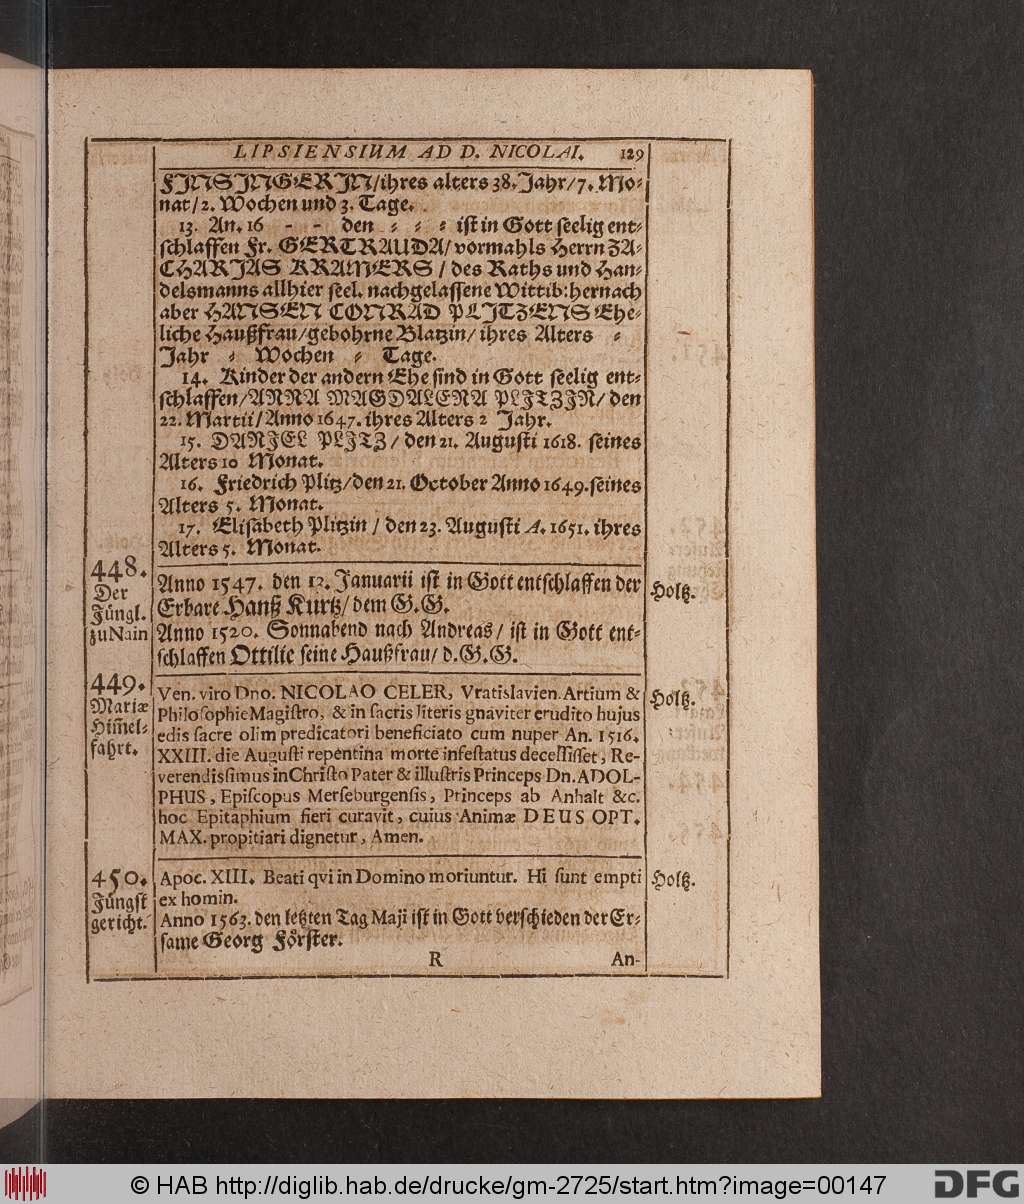 LIPSIENSIUM AD D. NICOLAI. 129
FINSINGERIN/ihres alters 38. Jahr/7. Mo-
nat/2. Wochen und 3. Tage.
13. An. 16 - - den - - - ist in Gott seelig ent-
schlaffen Fr. GERTRAUDA/vormahls Herrn ZA-
CHARIAS KRAMERS / des Raths und Han-
delsmanns allhier seel. nachgelassene Wittib: hernach
aber HANSEN CONRAD PLITZENS Ehe-
liche Haußfrau/gebohrne Blatzin/ ihres Alters -
Jahr - Wochen - Tage.
14. Kinder der andern Ehe sind in Gott seelig ent-
schlaffen/ANNA MAGDALENA PLITZIN/ den
22. Martii/Anno 1647. ihres Alters 2 Jahr.
15. DANIEL PLITZ / den 21. Augusti 1618. seines
Alters 10 Monat.
16. Friedrich Plitz/den 21. October Anno 1649. seines
Alters 5. Monat.
17. Elisabeth Plitzin / den 23. Augusti A. 1651. ihres
Alters 5. Monat.
448.
Der
Jüngl.
zu Nain
Anno 1547. den 12. Januarii ist in Gott entschlaffen der
Erbare Hanß Kurtz/ dem G.G.
Anno 1520. Sonnabend nach Andreas/ ist in Gott ent-
schlaffen Ottilie seine Haußfrau/ d.G.G.
Holtz.
449.
Mariæ
Him̃el-
fahrt.
Ven. viro Dno. NICOLAO CELER, Vratislavien. Artium &
Philosophie Magistro, & in sacris literis gnaviter erudito hujus
edis sacre olim predicatori beneficiato cum nuper An. 1516.
XXIII. die Augusti repentina morte infestatus decessisset, Re-
verendissimus in Christo Pater & illustris Princeps Dn. ADOL-
PHUS, Episcopus Merseburgensis, Princeps ab Anhalt &c.
hoc Epitaphium fieri curavit, cuius Animæ DEUS OPT.
MAX. propitiari dignetur, Amen.
Holtz.
450.
Jüngst
gericht.
Apoc. XIII. Beati qvi in Domino moriuntur. Hi sunt empti
ex homin.
Anno 1563. den letzten Tag Maji ist in Gott verschieden der Er-
same Georg Förster.
Holtz.
R An-
© HAB http://diglib.hab.de/drucke/gm-2725/start.htm?image=00147
DFG